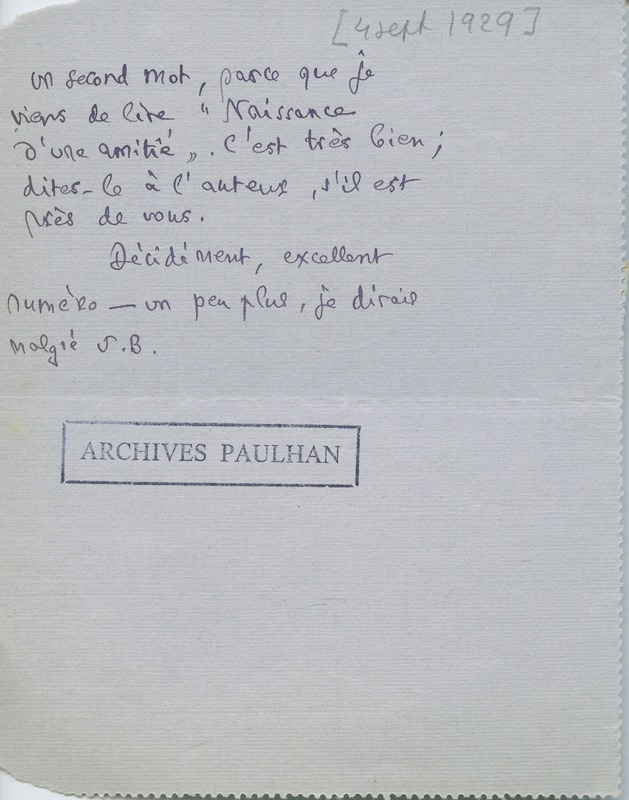 [4 sept 1929]
un second mot, parce que je
viens de lire "Naissance
d'une amitié". C'est très bien ;
dites-le à l'auteur, s'il est
près de vous.
Décidément, excellent
numéro — un peu plus, je dirais
malgré J.B.
ARCHIVES PAULHAN